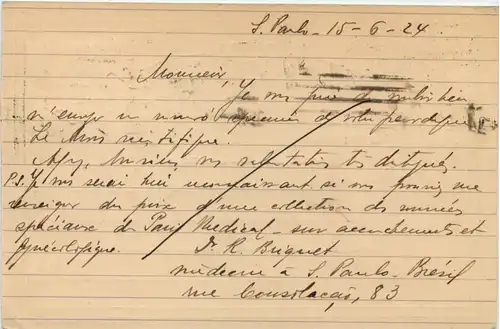 S. Paulo - 15-6-24.
Monsieur,
Je vous prie de vouloir bien
m'envoyer un numéro specimen de votre periodique
Le Mois scientifique.
Agréez, Monsieur, mes salutations très distinguées.
P.S. Je vous serai bien reconnaissant si vous pouviez me
renseigner du prix d'une collection des numéros
spéciaux de Paris Medical - sur accouchements et
gynécologique.
Dr. R. Briquet
médecin à S. Paulo - Brésil
rue Consolação, 83